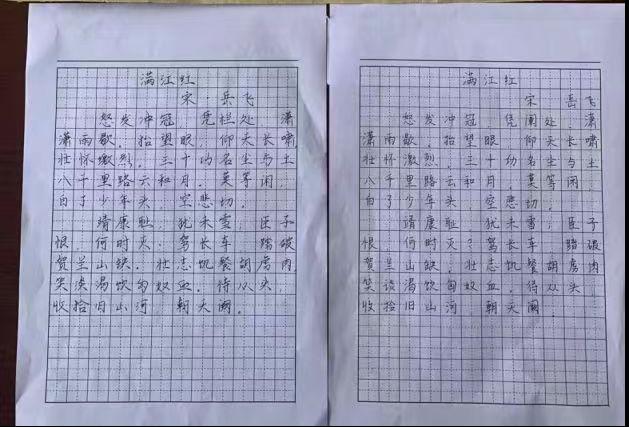 满江红
宋·岳飞
怒发冲冠 凭栏处 潇
潇雨歇.抬望眼.仰天长啸.
壮怀激烈.三十功名尘与土
八千里路云和月.莫等闲
白了少年头.空悲切.
靖康耻.犹未雪;臣子
恨.何时灭.驾长车.踏破
贺兰山缺.壮志饥餐胡虏肉
笑谈渴饮匈奴血.待从头,
收拾旧山河.朝天阙.
满江红
宋 岳飞
怒发冲冠 凭阑处.潇
潇雨歇.抬望眼.仰天长啸
壮怀激烈.三十功名尘与土
八千里路云和月.莫等闲.
白了少年头.空悲切.
靖康耻 犹未雪;臣子
恨.何时灭?驾长车 踏破
贺兰山缺.壮志饥餐胡虏肉
笑谈渴饮匈奴血.待从头.
收拾旧山河.朝天阙.